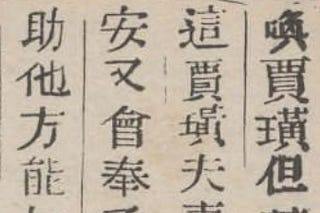 喚賈璜但
這賈璜夫
安又會奉
助他方能